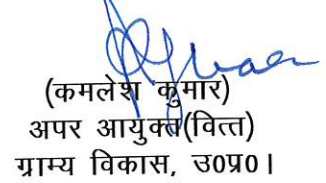 (कमलेश कुमार)
अपर आयुक्त(वित्त)
ग्राम्य विकास, उ0प्र0।